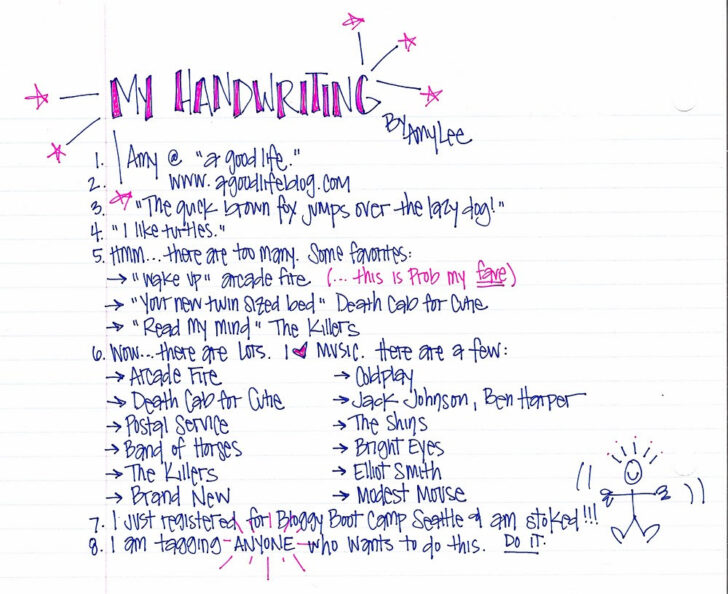 MY HANDWRITING
By Amy Lee
1. Amy @ "a good life."
2. www.agoodlifeblog.com
3. "The quick brown fox jumps over the lazy dog!"
4. "I like turtles."
5. Hmm... there are too many. Some favorites:
→ "Wake Up" Arcade Fire (... this is prob my fave)
→ "Your new twin sized bed" Death Cab for Cutie
→ "Read My Mind" The Killers
6. Wow... there are lots. I ♥ MUSIC. Here are a few:
→ Arcade Fire → Coldplay
→ Death Cab for Cutie → Jack Johnson, Ben Harper
→ Postal Service → The Shins
→ Band of Horses → Bright Eyes
→ The Killers → Elliot Smith
→ Brand New → Modest Mouse
7. I just registered for Bloggy Boot Camp Seattle & am stoked!!!
8. I am tagging - ANYONE - who wants to do this. DO IT.